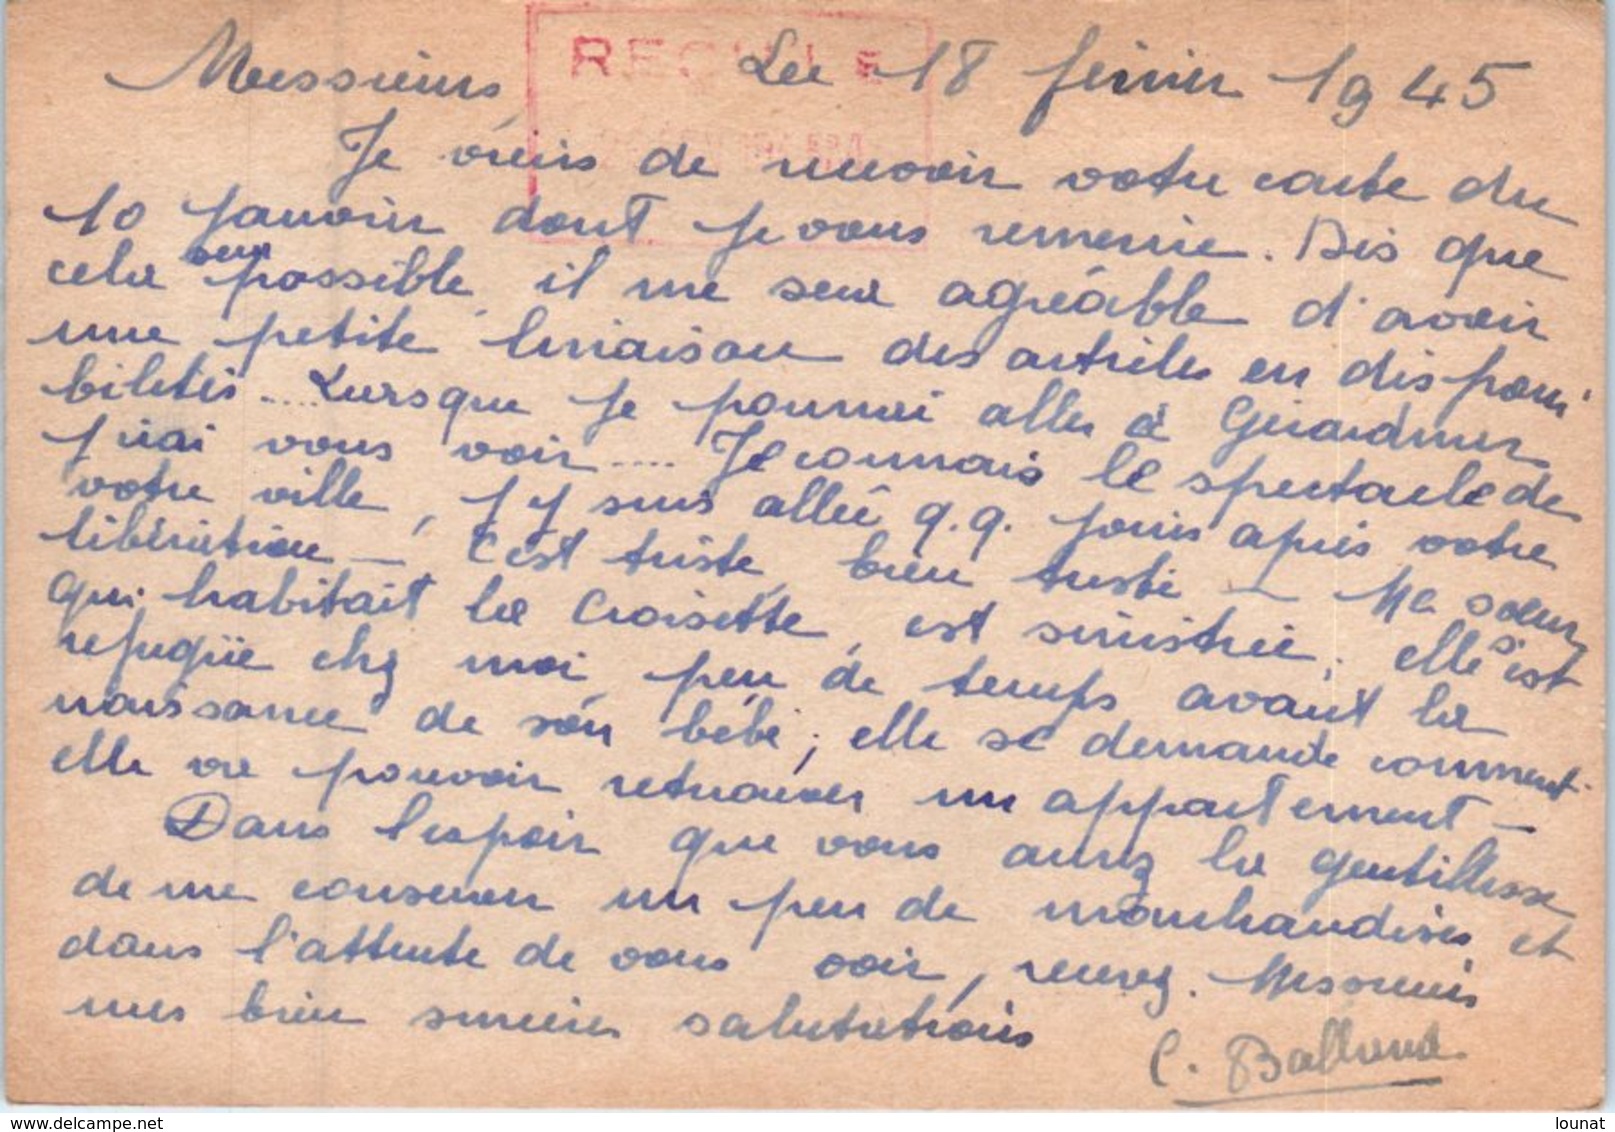 Messieurs, Le 18 février 1945
Je viens de recevoir votre carte du
10 janvier dont je vous remercie. Dès que
cela sera possible, il me sera agréable d'avoir
une petite livraison des articles en disponi
bilités.... Lorsque je pourrai aller à Gérardmer
j'irai vous voir.... Je connais le spectacle de
votre ville, j'y suis allée q.q. jours après votre
libération — C'est triste, bien triste — Ma soeur
qui habitait la Croisette, est sinistrée. elle s'est
refugiée chez moi peu de temps avant la
naissance de son bébé; elle se demande comment
elle va pouvoir retrouver un appartement —
Dans l'espoir que vous aurez la gentillesse
de me conserver un peu de marchandises et
dans l'attente de vous voir, recevez. Messieurs
mes bien sincères salutations
C. Balland
lounat